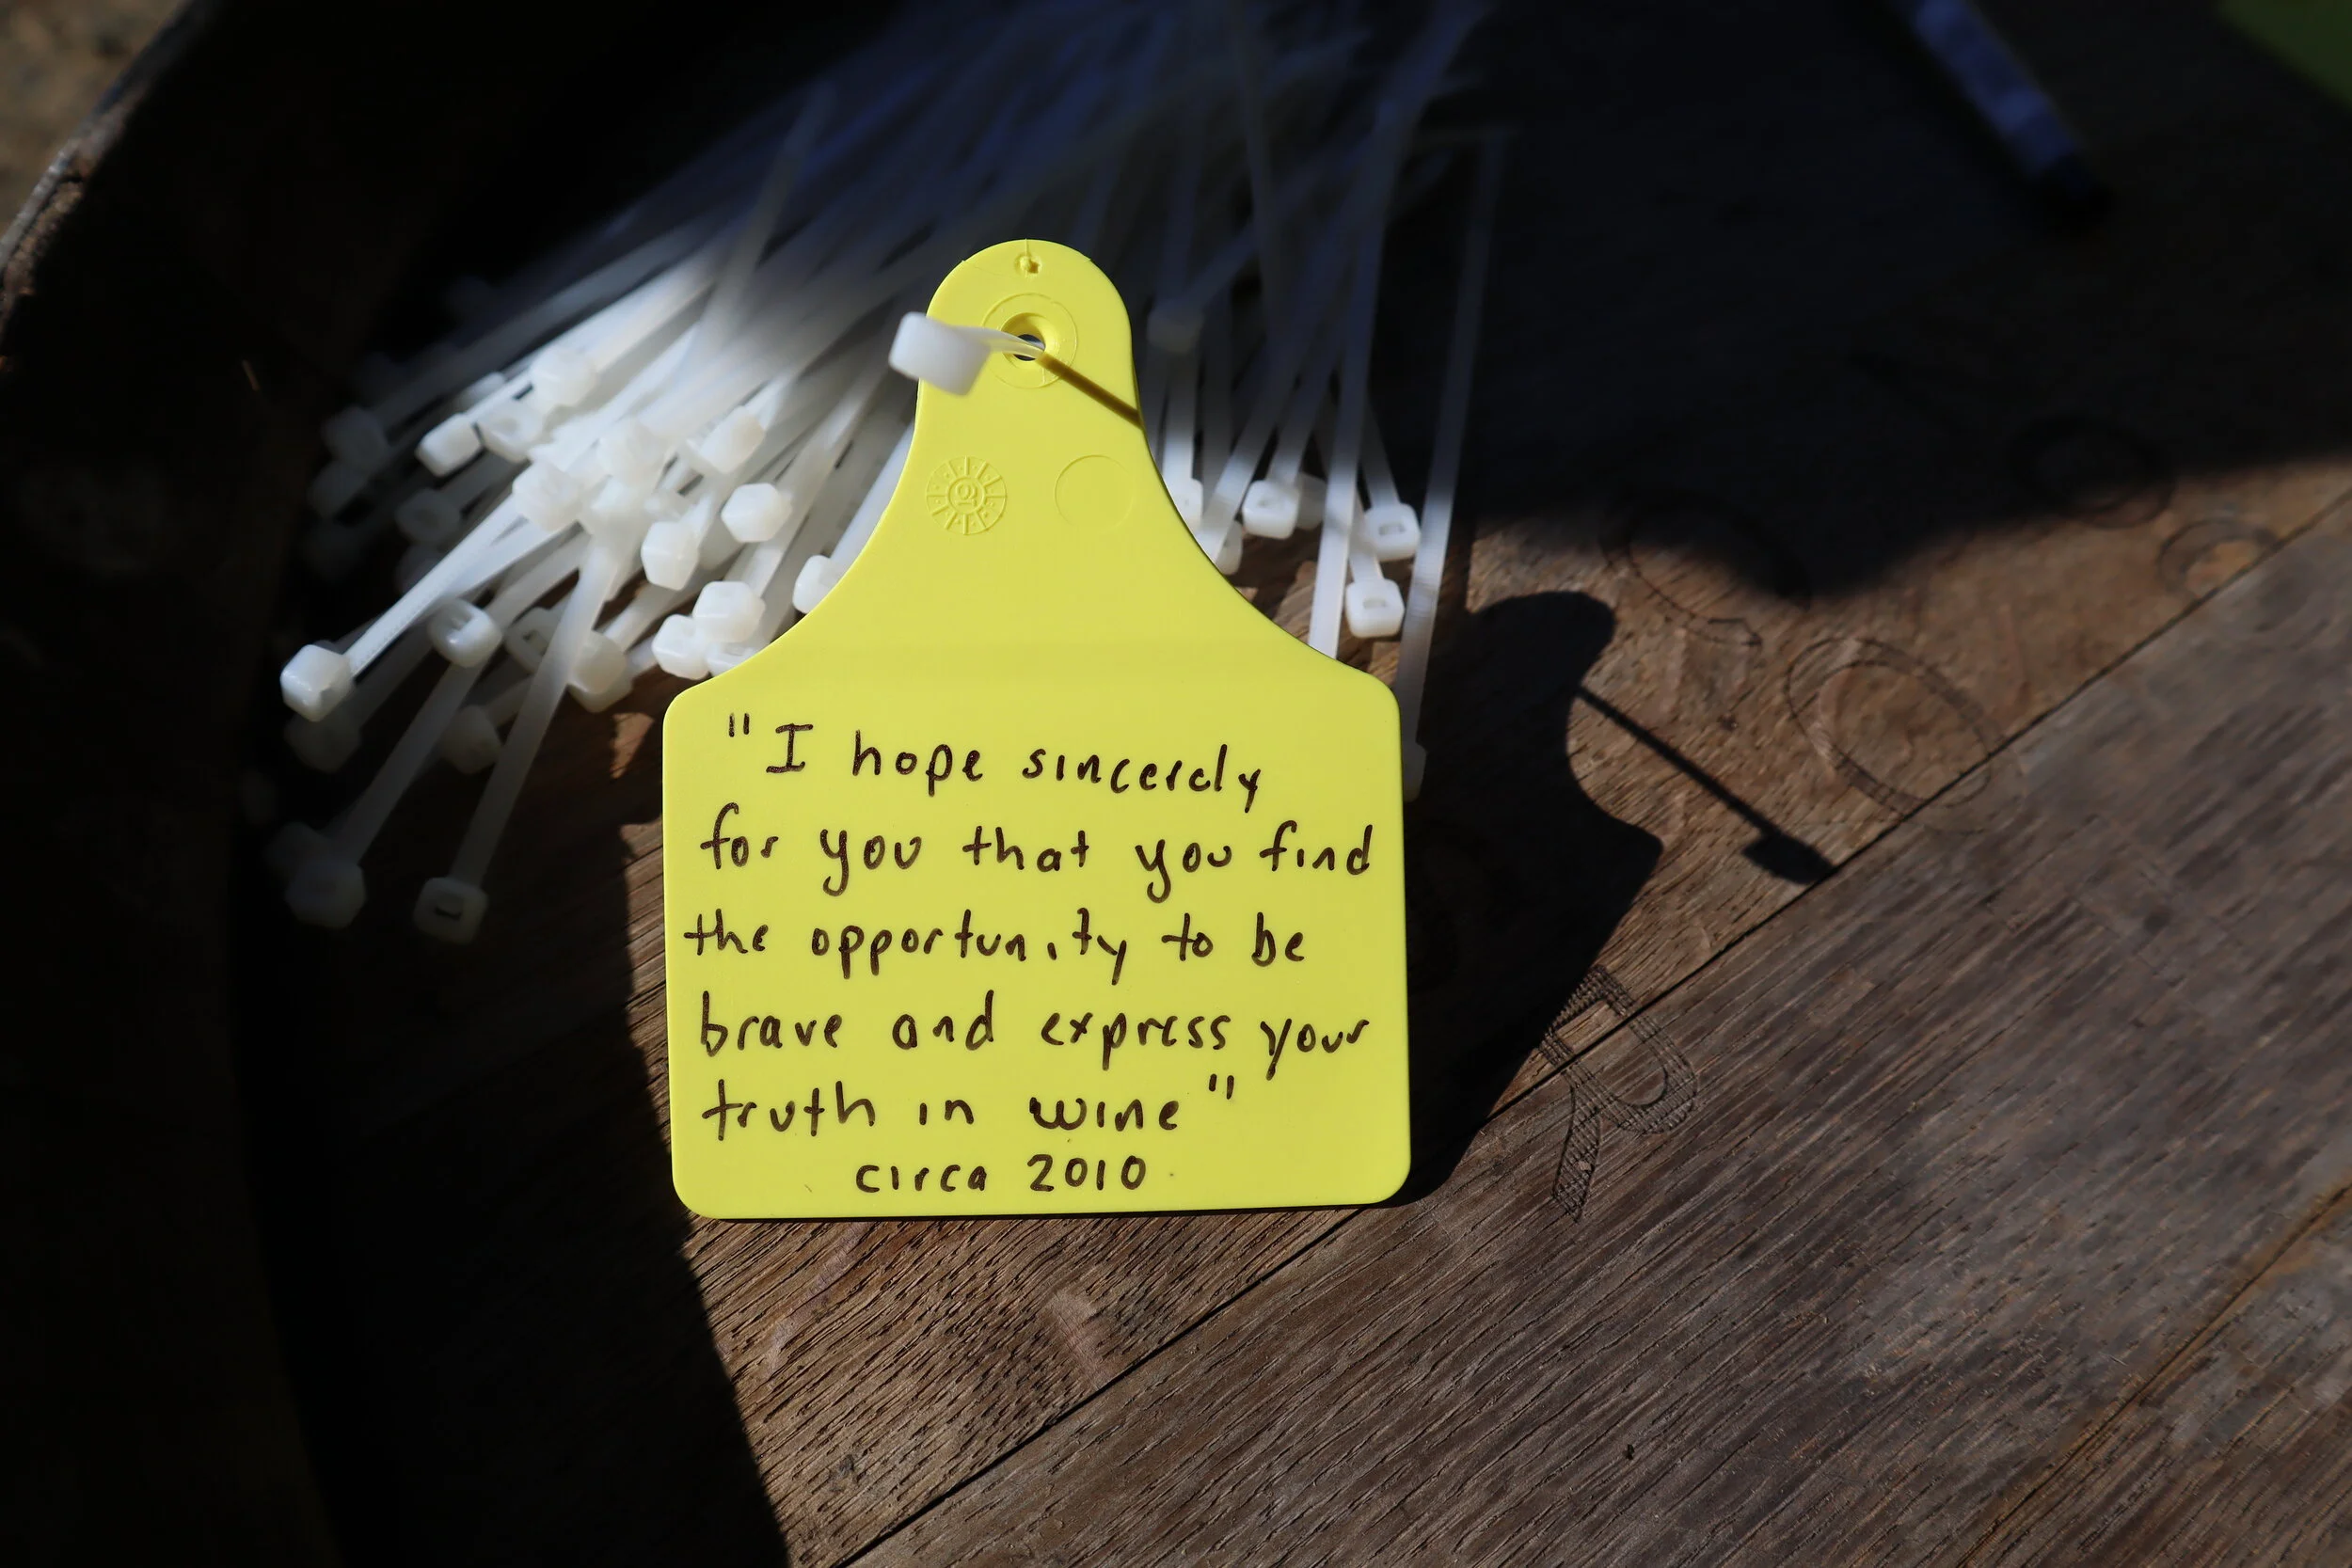 "I hope sincerely
for you that you find
the opportunity to be
brave and express your
truth in wine"
circa 2010